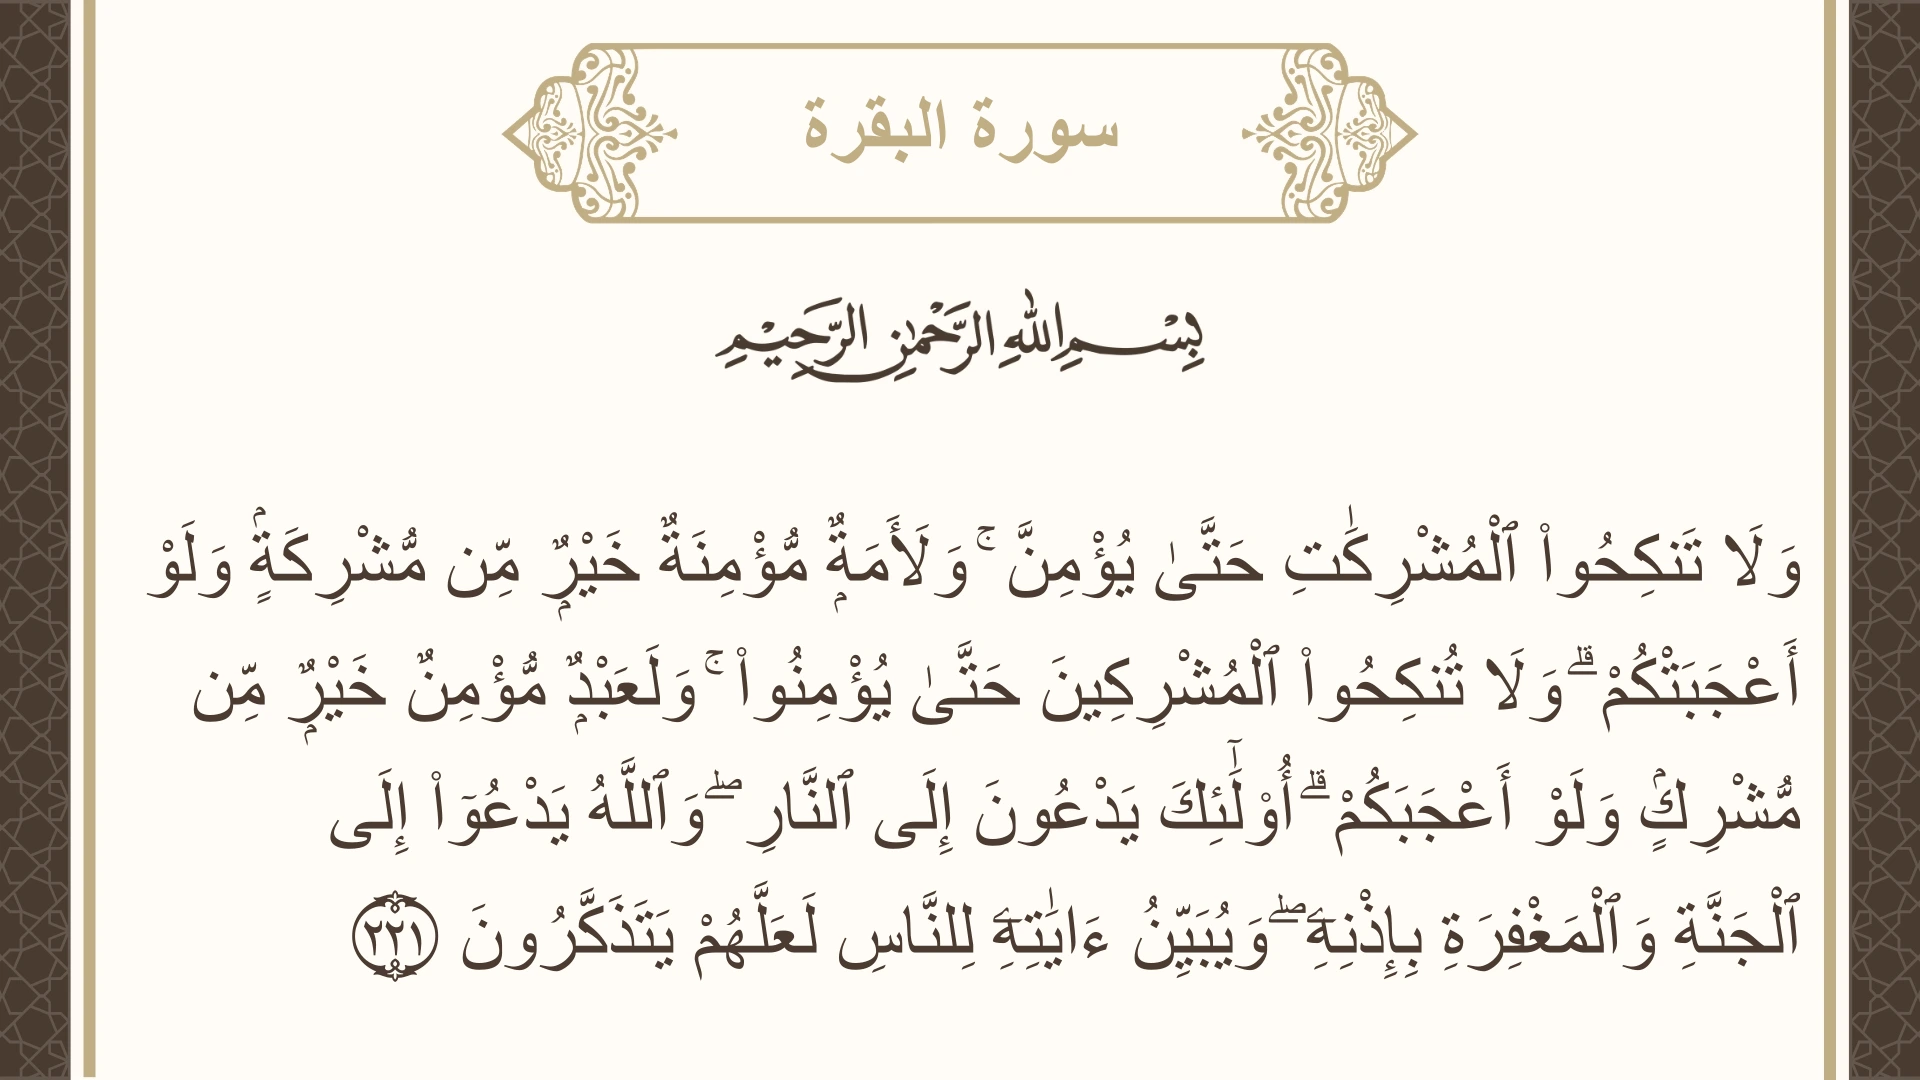 سورة البقرة
بِسْمِ اللهِ الرَّحْمٰنِ الرَّحِيْمِ
وَلَا تَنكِحُوا۟ ٱلْمُشْرِكَـٰتِ حَتَّىٰ يُؤْمِنَّ ۚ وَلَأَمَةٌۭ مُّؤْمِنَةٌ خَيْرٌۭ مِّن مُّشْرِكَةٍۢ وَلَوْ
أَعْجَبَتْكُمْ ۗ وَلَا تُنكِحُوا۟ ٱلْمُشْرِكِينَ حَتَّىٰ يُؤْمِنُوا۟ ۚ وَلَعَبْدٌۭ مُّؤْمِنٌ خَيْرٌۭ مِّن
مُّشْرِكٍۢ وَلَوْ أَعْجَبَكُمْ ۗ أُو۟لَـٰٓئِكَ يَدْعُونَ إِلَى ٱلنَّارِ ۖ وَٱللَّهُ يَدْعُوٓا۟ إِلَى
ٱلْجَنَّةِ وَٱلْمَغْفِرَةِ بِإِذْنِهِۦ ۖ وَيُبَيِّنُ ءَايَـٰتِهِۦ لِلنَّاسِ لَعَلَّهُمْ يَتَذَكَّرُونَ ٢٢١